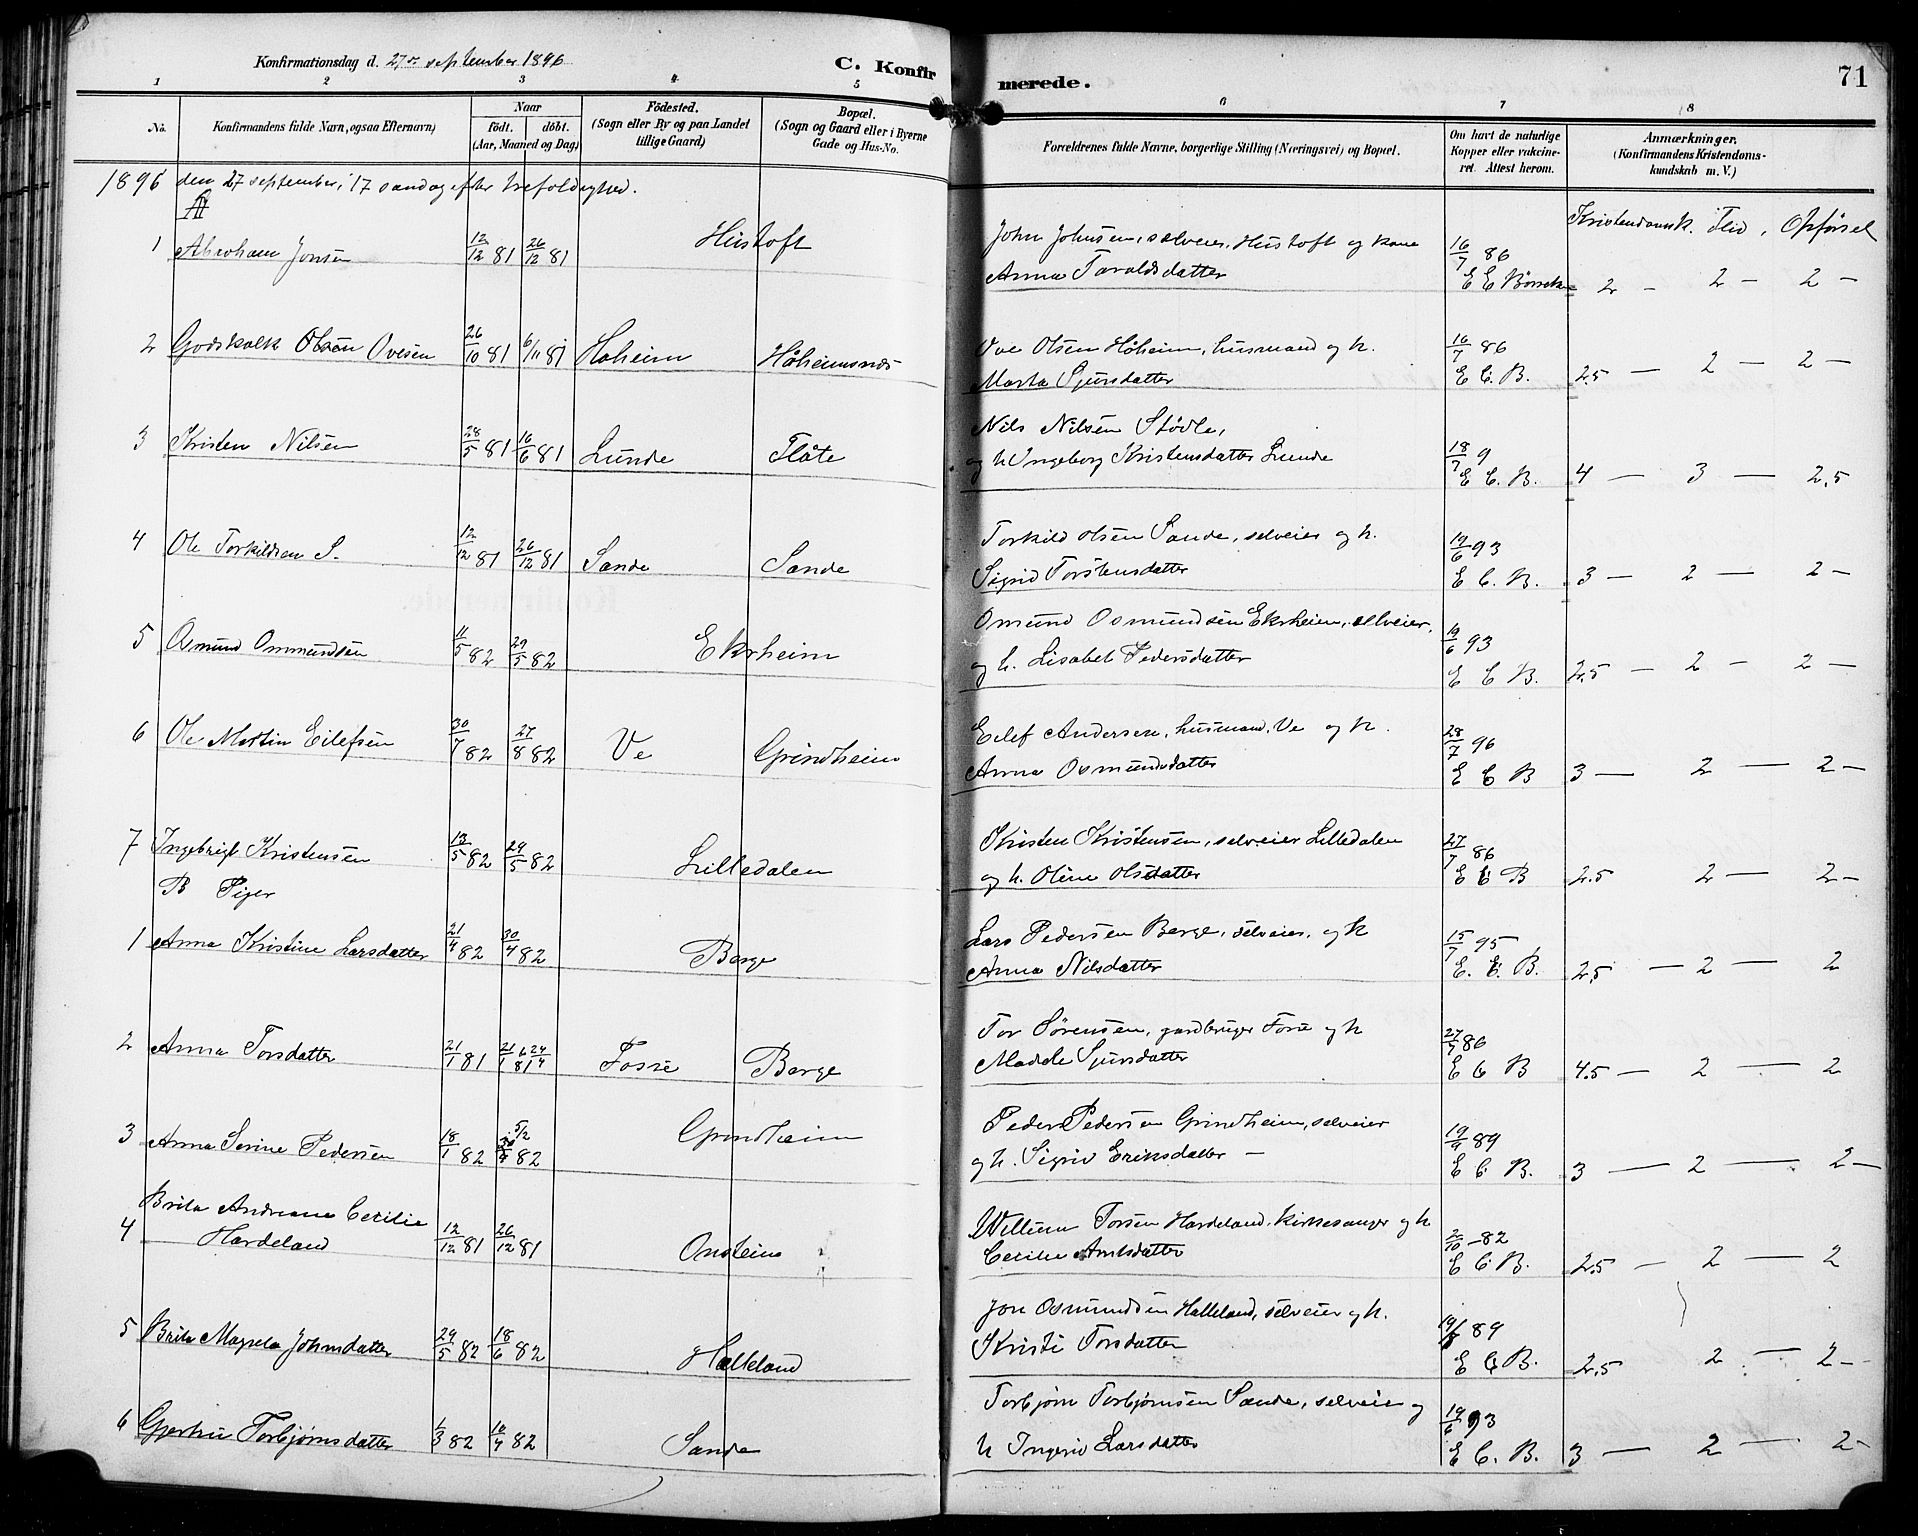 Konfirmationsdag d. 27de september 1896
C. Konfirmerede.
71
1 2 3 4 5 6 7 8
No.
Konfirmandens fulde Navn, ogsaa Efternavn)
Naar
födt. döbt.
(Aar, Maaned og Dag)
Födested.
(Sogn eller By og paa Landet
tillige Gaard)
Bopæl.
(Sogn og Gaard eller i Byerne
Gade og Hus-No.
Forældrenes fulde Navne, borgerlige Stilling (Næringsvei) og Bopæl.
Om havt de naturlige
Kopper eller vakcineret. Attest herom.
Anmærkninger.
(Konfirmandens Kristendomskundskab m. V.)
1896 den 27 september, 17 søndag efter trefoldighed.
Kristendomsk. Flid, Opførsel
1 Abraham Jonsen 12/12 81 26/12 81 Hustoft John Johnsen, selveier, Hustoft og kone 16/7 86
Anna Taraldsdatter E E Børsek 2 — 2 — 2 —
2 Godskalk Olsen Ovesen 26/10 81 6/11 81 Høheim Høheimsnæs Ove Olsen Høheim, husmand og h. 16/7 86
Marta Sjursdatter E E. B. 2.5 — 2 — 2 —
3 Kristen Nilsen 28/5 81 16/6 81 Lunde Flåte Nils Nilsen Stødle,
og h Ingeborg Kristensdatter Lunde 18/7 9
E E. B. 4 — 3 — 2,5
4 Ole Torkildsen S. 12/12 81 26/12 81 Sande Sande Torkild Olsen Sande, selveier og h. 19/6 93
Sigrid Torstensdatter E E. B. 3 — 2 — 2 —
5 Osmund Ommundsen 11/5 82 29/5 82 Ekrheim Omund Osmundsen Ekrheim, selveier, 19/6 93
og h. Lisabet Pedersdatter E E B. 2,5 — 2 — 2 —
6 Ole Martin Eilefsen 30/7 82 27/8 82 Ve Grindheim Eilef Andersen, husmand, Ve og h. 28/7 96
Anna Osmundsdatter E E B 3 — 2 — 2 —
7 Ingebrigt Kristensen 13/5 82 29/5 82 Lilledalen Kristen Kristensen, selveier Lilledalen 27/7 86
og h. Oline Olsdatter E E B 2.5 2 — 2 —
B Piger
1 Anna Kristine Larsdatter 21/4 82 30/4 82 Berge Lars Pedersen Berge, selveier, og h 15/7 95
Anna Nilsdatter E. E. B. 2,5 — 2 — 2
2 Anna Torsdatter 21/1 81 Fosse Berge Tor Sørensen, gardbruger Fosse og h 27/7 86
Madele Sjursdatter E E B 4.5 — 2 — 2
3 Anna Serine Pedersen 18/1 82 5/2 82 Grindheim Peder Pedersen Grindheim, selveier 19/9 89
og h. Sigrid Eriksdatter — E E. B. 3 — 2 — 2 —
Brita Andreane Cecilie
4 — Hardeland 12/12 81 26/12 81 Onsteins Willum Torsen Hardeland, kirkesanger og h 2/10 — 82
Cecilie Amlsdatter E E B. 2.5 — 2 — 2
5 Brita Magrela Johnsdatter 29/5 82 18/6 82 Halleland Jon Osmundsen Halleland, selveier og h. 19/6 89
Kristi Torsdatter E E B. 2,5 2 — 2 —
6 Gjertru Torbjørnsdatter 1/3 82 10/4 82 Sande Torbjørn Torbjørnsen Sande, selveier og 19/6 93
h Ingerid Larsdatter E E. B. 3 — 2 — 2 —